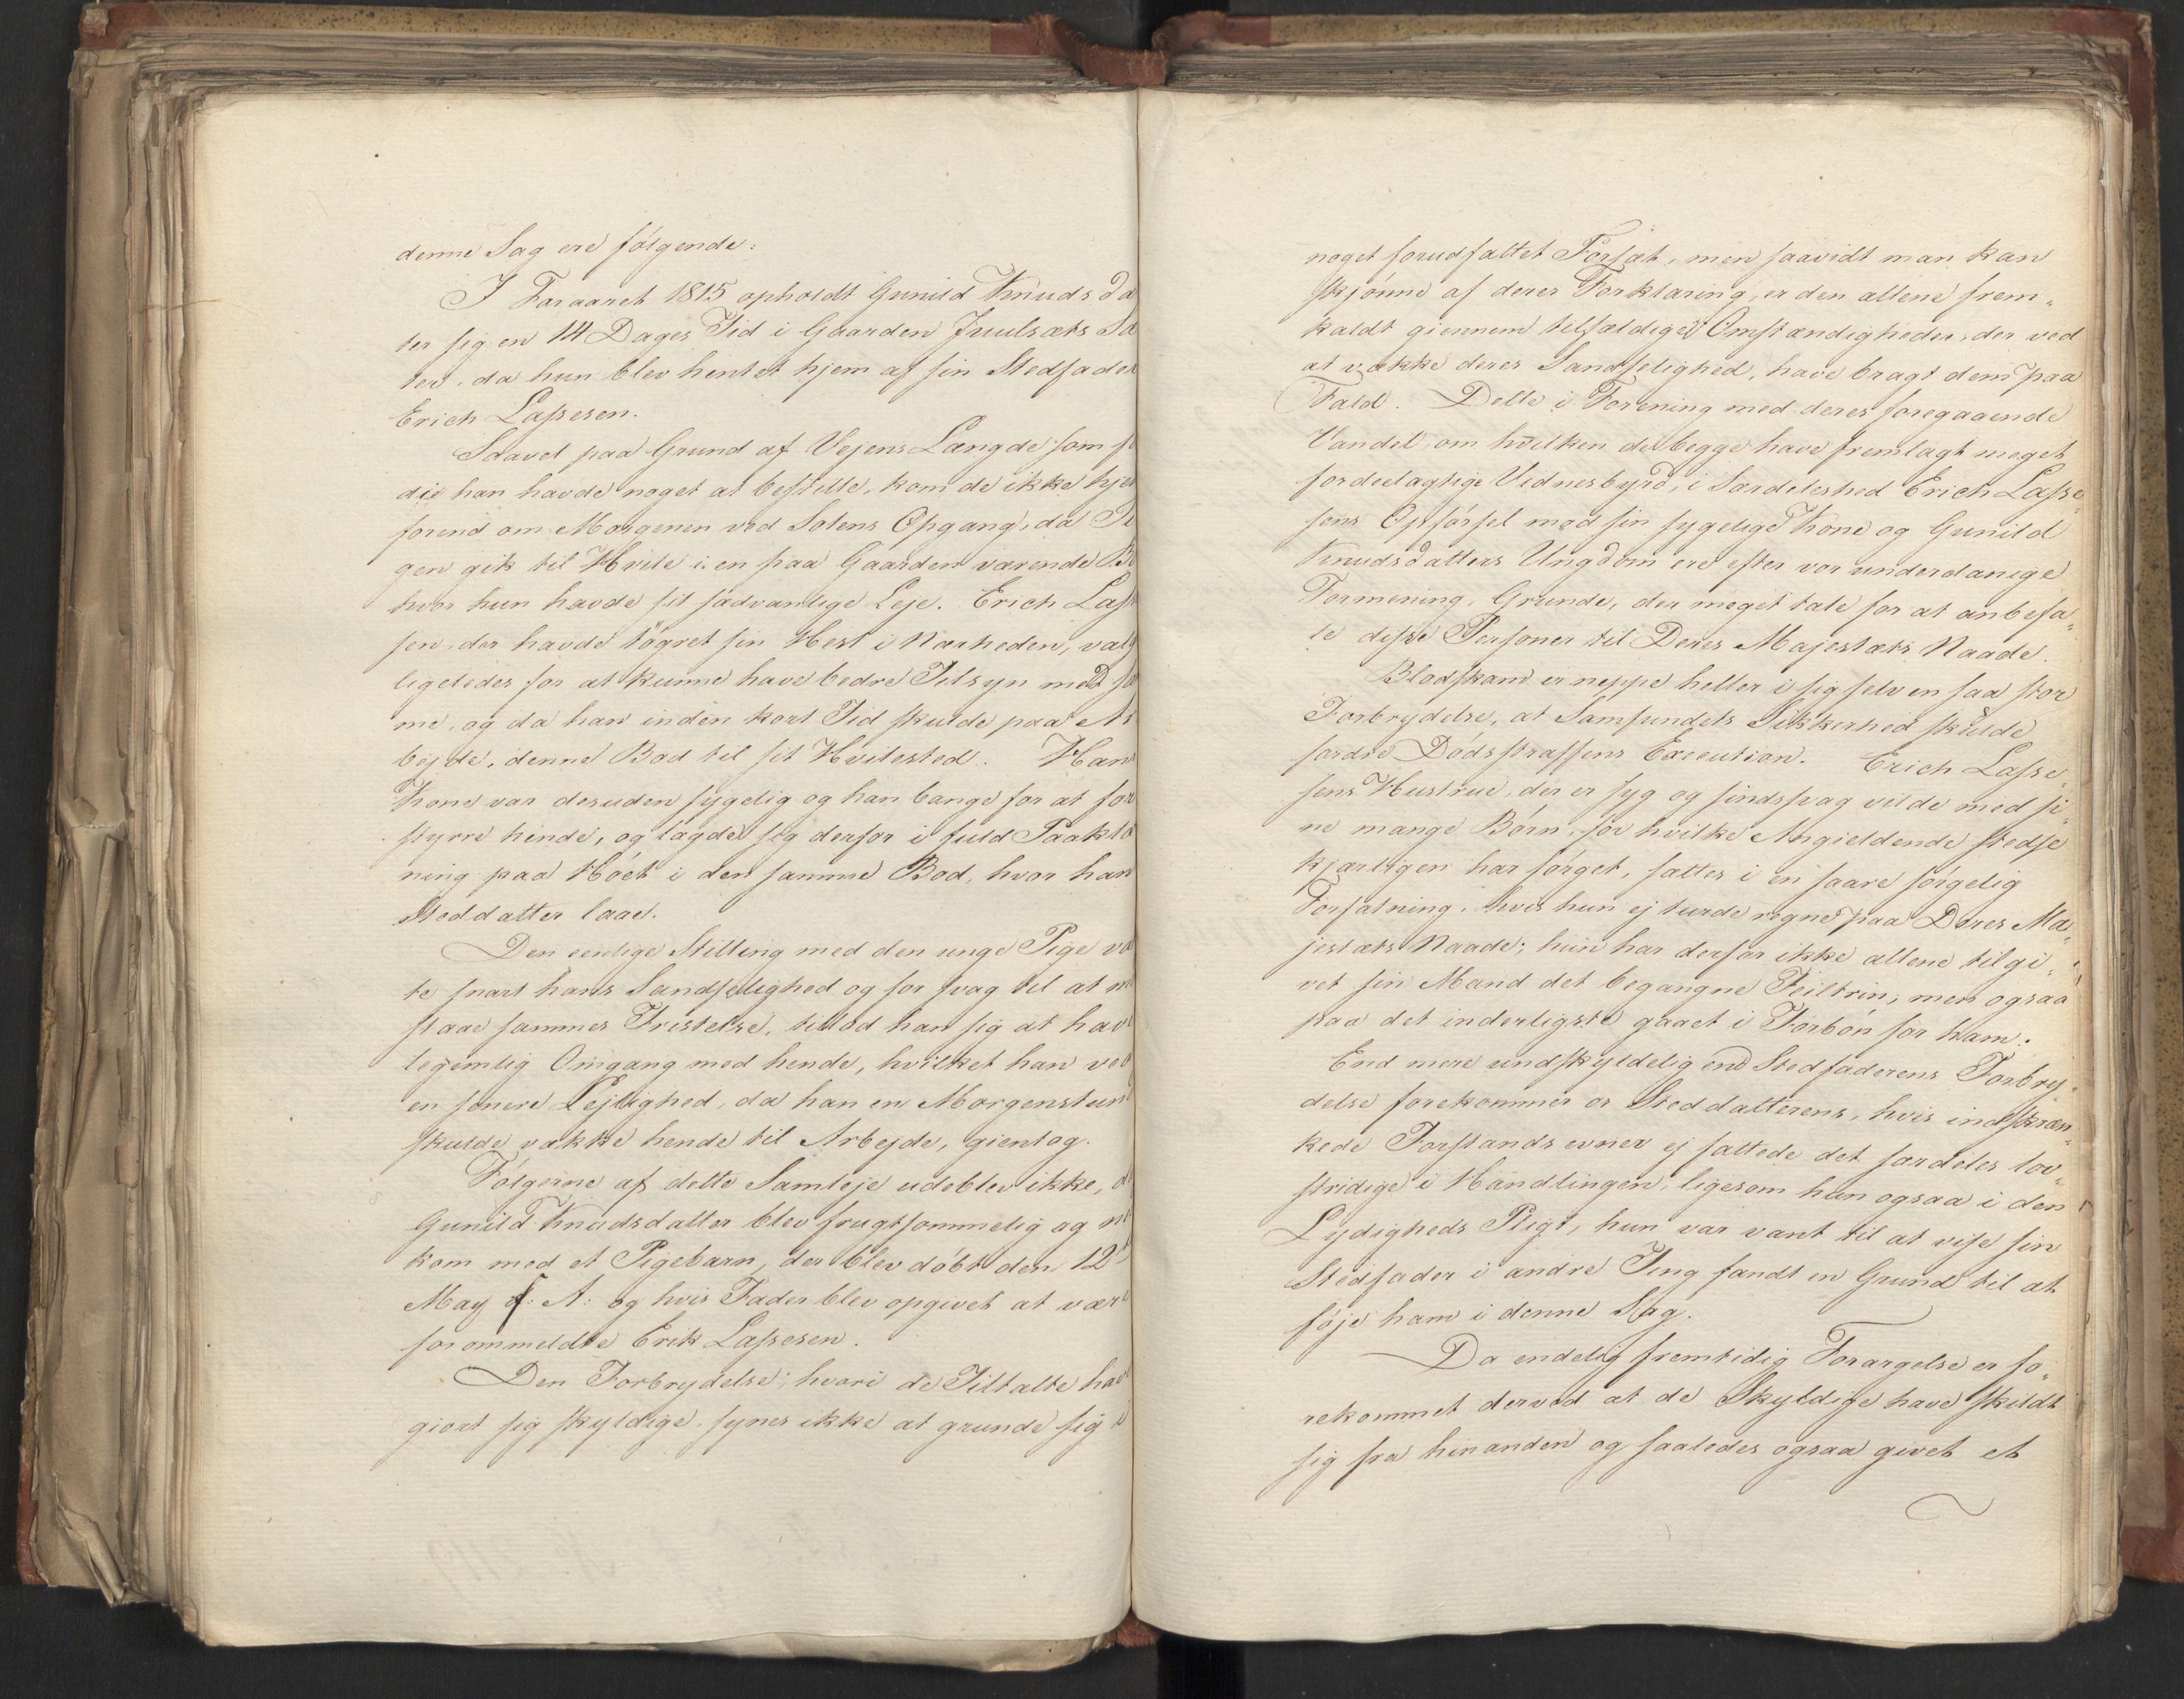 denne Sag ere følgende:
I Foraaret 1815 opholdt Gunild Knuds da
ter sig en 14 Dages Tid i Gaarden Juulsæts Sæ
ter, da hun blev hentet hjem af sin Stedfader
Erich Lassesen.
Saavel paa Grund af Vejens Længde som fo
die han havde noget at bestille, kom de ikke hjem
forend om Morgenen ved Solens Opgang, da Pi
gen gik til Hvile i en paa Gaarden værende Bo
hvor hun havde sit sædvanlige Leje. Erich Lasse
sen, der havde tøgret sin Hest i Nærheden, valg
ligeledes for at kunne have bedre Tilsyn med sa
me, og da han inden kort Tid skulde paa Ar
bejde, denne Bod til sit Hvilested. Hans
Kone var desuden sygelig og han bange for at for
styrre hende, og lagde sig derfor i fuld Paaklæ
ning paa Høet i den samme Bod, hvor han
Steddatter laae.
Den eenlige Stilling med den unge Pige va
te snart hans Sandselighed og for svag til at mo
staae sammes Fristelse, tillod han sig at have
legemlig Omgang med hende, hvilket han ved
en senere Lejlighed, da han en Morgenstund
skulde vække hende til Arbejde, gientog.
Følgerne af dette Samleje udeblev ikke, d
Gunild Knudsdatter blev frugtsommelig og ne
kom med et Pigebarn, der blev døbt den 12te
May f: A: og hvis Fader blev opgivet at være
forommeldte Erik Lassesen.
Den Forbrydelse, hvori de Tiltalte have
giort sig skyldige, synes ikke at grunde sig i
noget forudfattet Forsæt, men saavidt man kan
skjønne af deres Forklaring, er den allene frem„
kaldt giennem tilfældige Omstændigheder, der ved
at vække deres Sandselighed, have bragt dem paa
Fald. Dette i Forening med deres foregaaende
Vandel, om hvilken de begge have fremlagt meget
fordeelagtige Vidnesbyrd, i Særdeleshed Erich Lasse„
sens Opførsel mod sin sygelige Kone og Gunild
Knudsdatters Ungdom ere efter vor underdanige
Formening, Grunde, der meget tale for at anbefa„
le disse Personer til Deres Majestæts Naade.
Blodskam er neppe heller i sig selv en saa stor
Forbrydelse, at Samfundets Sikkerhed skulde
fordre Dødsstraffens Execution. Erich Lasse„
sens Hustrue, der er syg og sindssvag vilde med si„
ne mange Børn, for hvilke Angieldende stedse
kjærligen har sørget, sættes i en saare sørgelig
Forfatning, hvis hun ej turde regne paa Deres Ma„
jestæts Naade; hun har derfor ikke allene tilgi„
vet sin Mand det begangne Feiltrin, men ogsaa
paa det inderligste gaaet i Forbøn for ham.
End mere undskyldelig end Stedfaderens Forbry„
delse forekommer os Steddatterens, hvis indskræn„
kede Forstands evner ej fattede det særdeles lov„
stridige i Handlingen, ligesom hun ogsaa i den
Lydigheds Pligt, hun var vant til at vise sin
Stedfader i andre Ting fandt en Grund til at
føje ham i denne Sag.
Da endelig fremtidig Forargelse er fo„
rekommet derved at de Skyldige have skildt
sig fra hinanden og saaledes ogsaa givet et